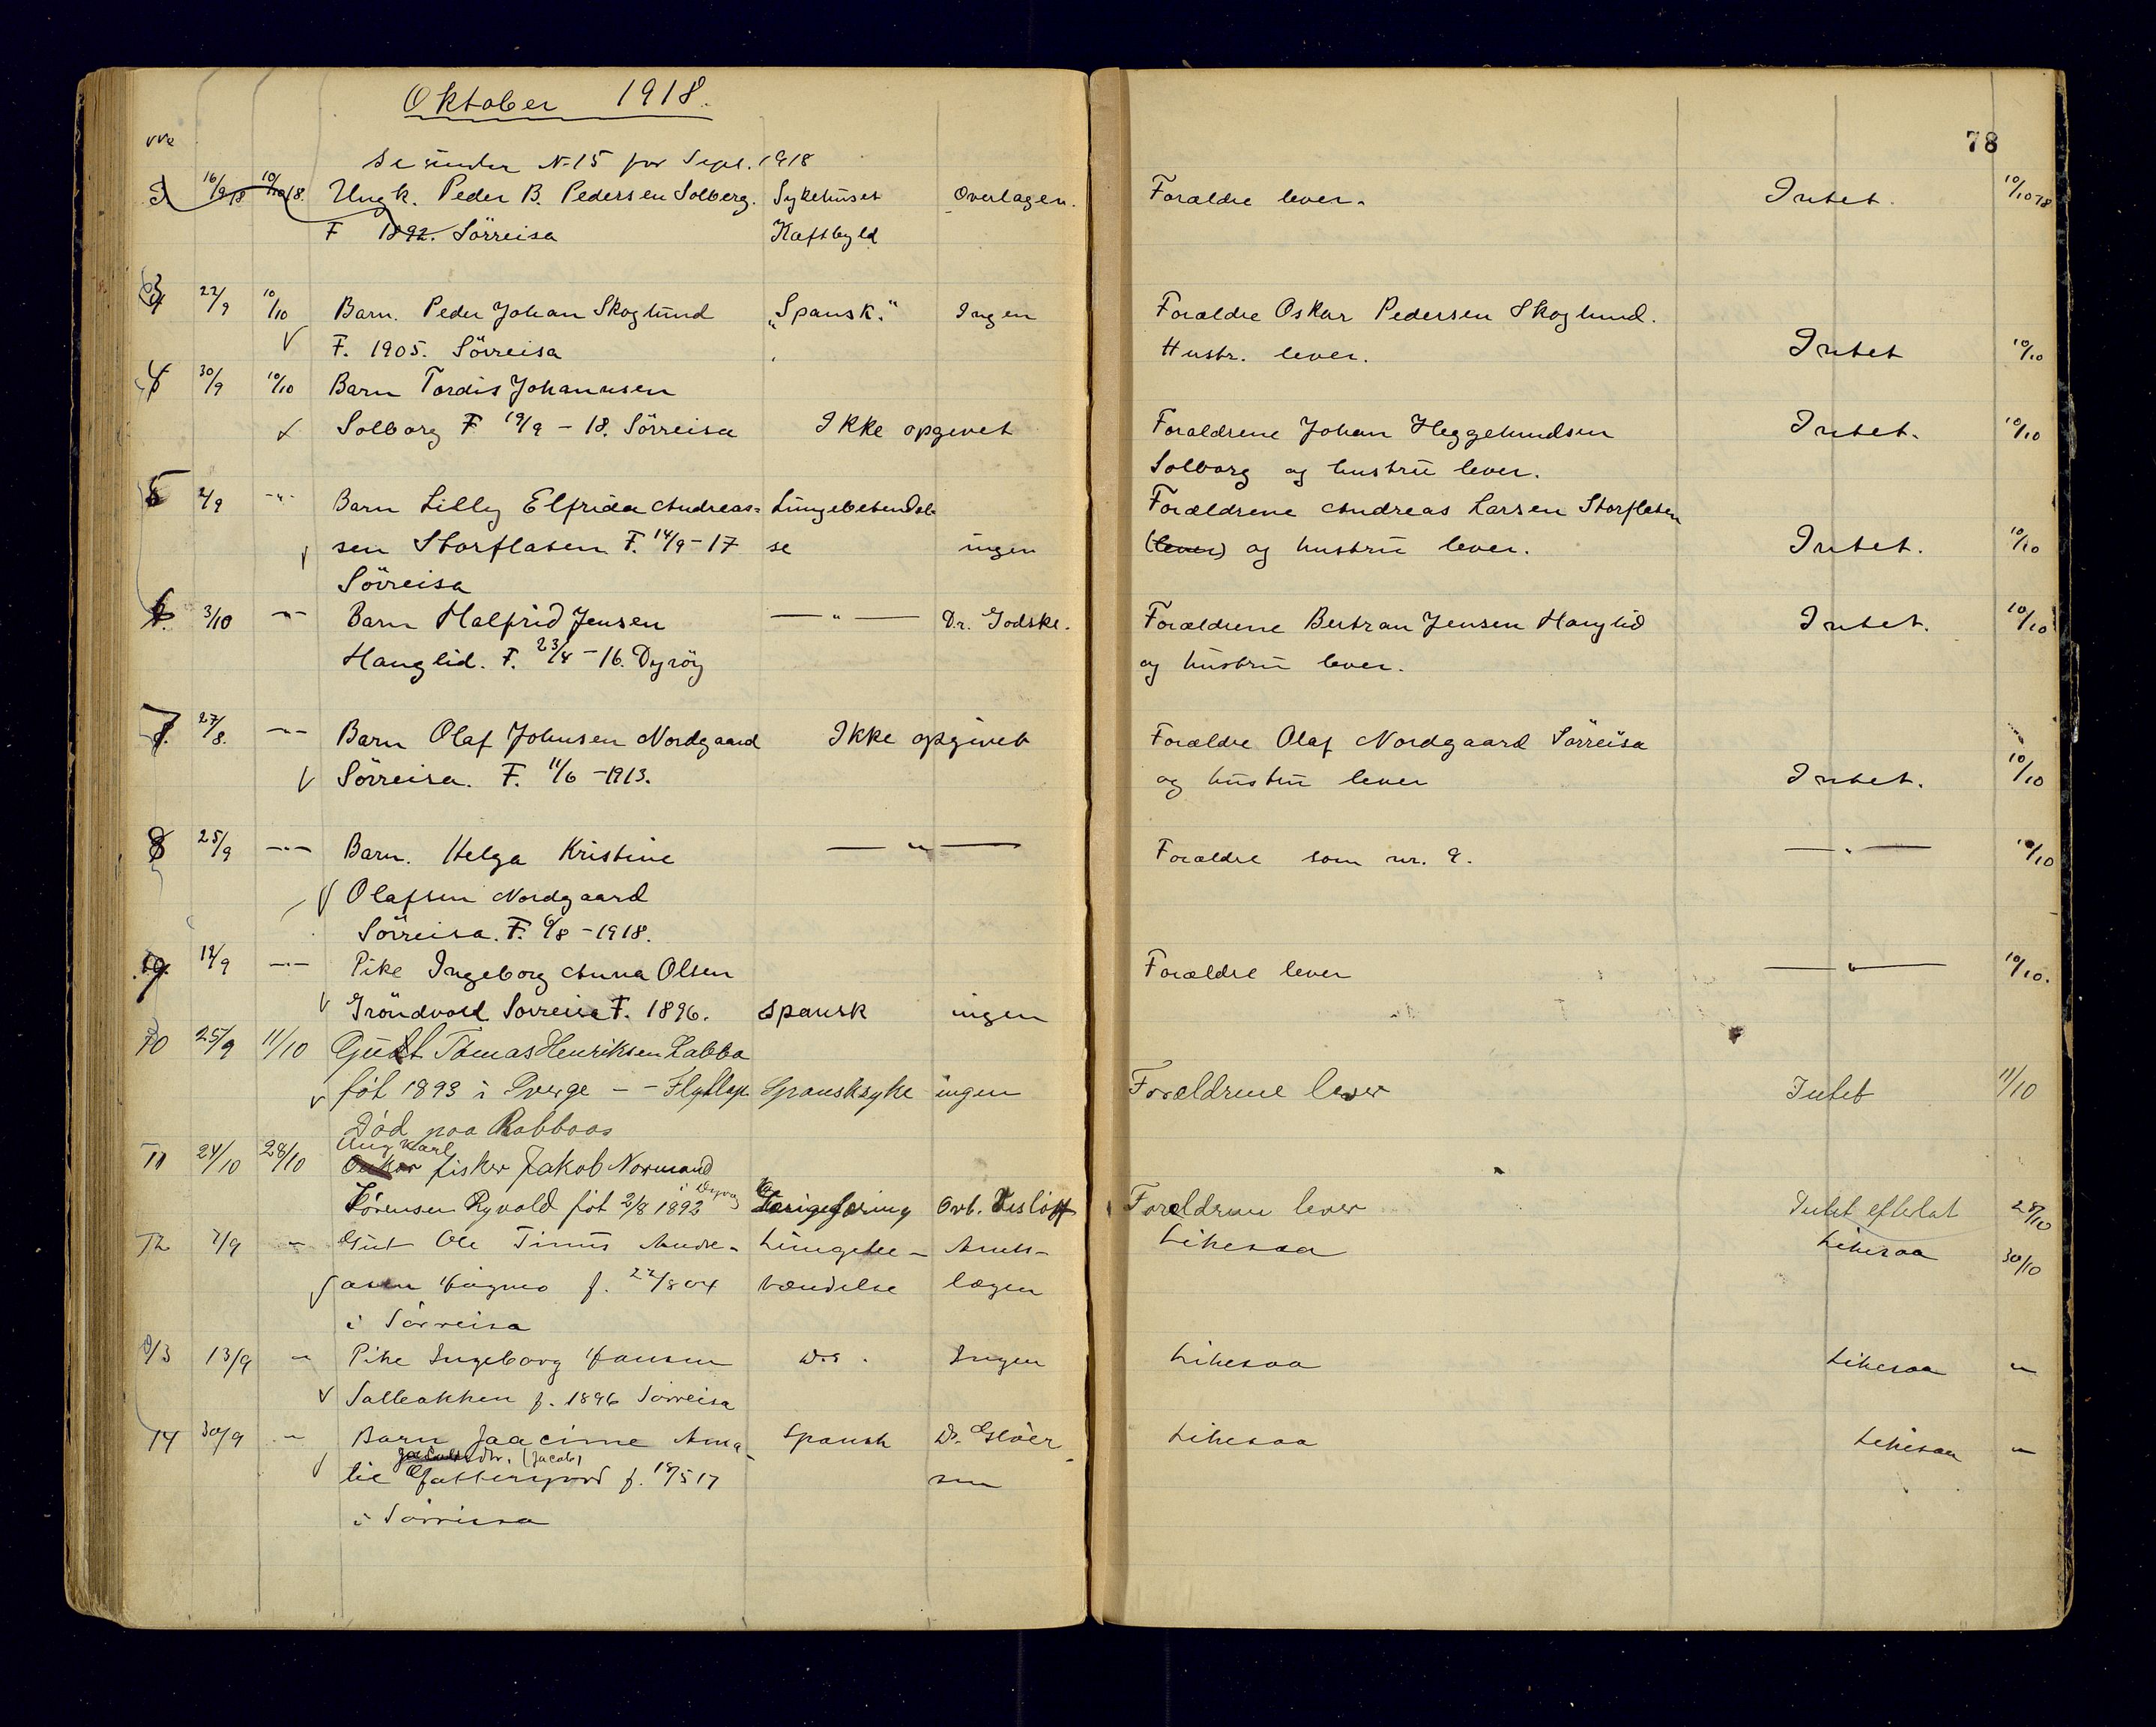 Oktober 1918.
78
Se under N-15 for Sept. 1918
16/9 18 10/10 18. Ungk. Peder B. Pedersen Solberg. Sykehuset Overlægen. Forældre lever. Intet. 10/10 18
F 1892. Sörreisa Kæftbyld
3 22/9 10/10 Barn. Peder Johan Skoglund „Spansk.“ Ingen Forældre Oskar Pedersen Skoglund.
F. 1905. Sörreisa Hustr. lever. Intet 10/10
4 30/9 10/10 Barn Tordis Johannsen
Solborg F 19/9 - 18. Sörreisa Ikke opgivet Forældrene Johan Heggelundsen Intet. 10/10
Solborg og hustru lever.
5 2/9 -"- Barn Lilly Elfrida Andreas= Lungebetendel- Forældrene Andreas Larsen Storflaten
sen Storflaten F. 14/9 - 17 se ingen (lever) og hustru lever. Intet. 10/10
Sörreisa
6. 3/10 -"- Barn Halfrid Jensen — " — Dr. Godske. Forældrene Bertran Jensen Hanglid Intet. 10/10
Hanglid. F. 23/4 - 16. Dyröy og hustru lever.
7. 27/8. -"- Barn Olaf Johnsen Nordgaard Ikke opgivet Forældre Olaf Nordgaard Sörreisa
Sörreisa. F. 11/6 - 1913. og hustru lever Intet. 10/10
8 25/9 -"- Barn. Helga Kristine — " — Forældre som nr. 9. — " — 10/10
Olafsen Nordgaard
Sörreisa. F. 6/8 - 1918.
9. 12/9 -"- Pike Ingeborg Anna Olsen Forældre lever — " — 10/10.
Gröndvold Sorreisa F. 1896. spansk ingen
10 25/9 11/10 Gut Tomas Henriksen Labba
föt 1893 i Sverge - - Flytlap Spansksyke ingen Forældrene lever Intet 11/10
Död paa Rabbaas
Ung Karl
11 24/10 28/10 fisker Jakob Normand
i Dyröy
Sörensen Ryvold föt 2/8 1892 Ovl. Forældrene lever Intet efterlat 28/10
12 7/9 -"- Gut Ole Tinus Andre- Lungebe- Amts- Likesaa Likesaa 30/10
asen f. 22/8 04 tændelse lægen
i Sörreisa
13 13/9 -"- Pike Ingeborg Hansen D.s. Ingen Likesaa Likesaa -"-
f. 1896 Sörreisa
14 30/9 -"- Barn Jaacime Ama- Spansk Dr. Glöer- Likesaa Likesaa -"-
dtr. (Jacob)
lie f. 18/5 17 sen
i Sörreisa